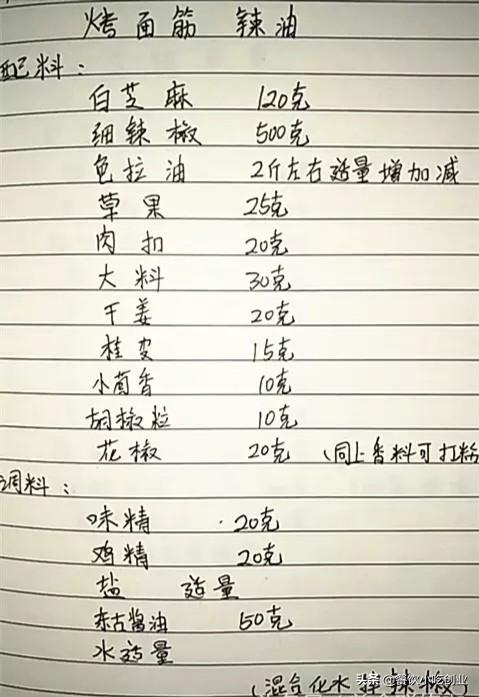 烤面筋 辣油
配料：
白芝麻 120克
细辣椒 500克
色拉油 2斤左右适量增加减
草果 25克
肉扣 20克
大料 30克
干姜 20克
桂皮 15克
小茴香 10克
胡椒粒 10克
花椒 20克 (同上香料可打粉
调料：
味精 20克
鸡精 20克
盐 适量
东古酱油 50克
水适量
(混合化水 辣椒)
头条 @餐饮小吃创业